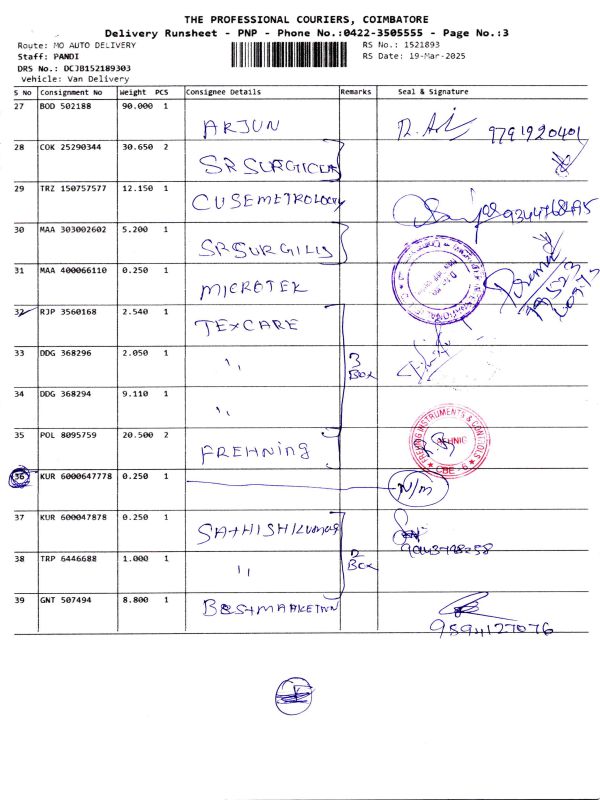 THE PROFESSIONAL COURIERS, COIMBATORE
Delivery Runsheet - PNP - Phone No.:0422-3505555 - Page No.:3
Route: MO AUTO DELIVERY
RS No.: 1521893
Staff: PANDI
RS Date: 19-Mar-2025
DRS No.: DCJB152189303
Vehicle: Van Delivery
S No Consignment No Weight PCS Consignee Details Remarks Seal & Signature
27 BOD 502188 90.000 1 ARJUN 9791920401
28 COK 25290344 30.650 2
29 TRZ 150757577 12.150 1 CUSEMETROLOGY
30 MAA 303002602 5.200 1
31 MAA 400066110 0.250 1 MICROTEK
32 RJP 3560168 2.540 1 TEXCARE
33 DDG 368296 2.050 1 " 3 Box
34 DDG 368294 9.110 1 "
35 POL 8095759 20.500 2 FREHNING
INSTRUMENTS & CONTROLS
CBE - 6
36 KUR 6000647778 0.250 1 N/m
37 KUR 600047878 0.250 1
38 TRP 6446688 1.000 1 " 2 Box
39 GNT 507494 8.800 1
9594127076